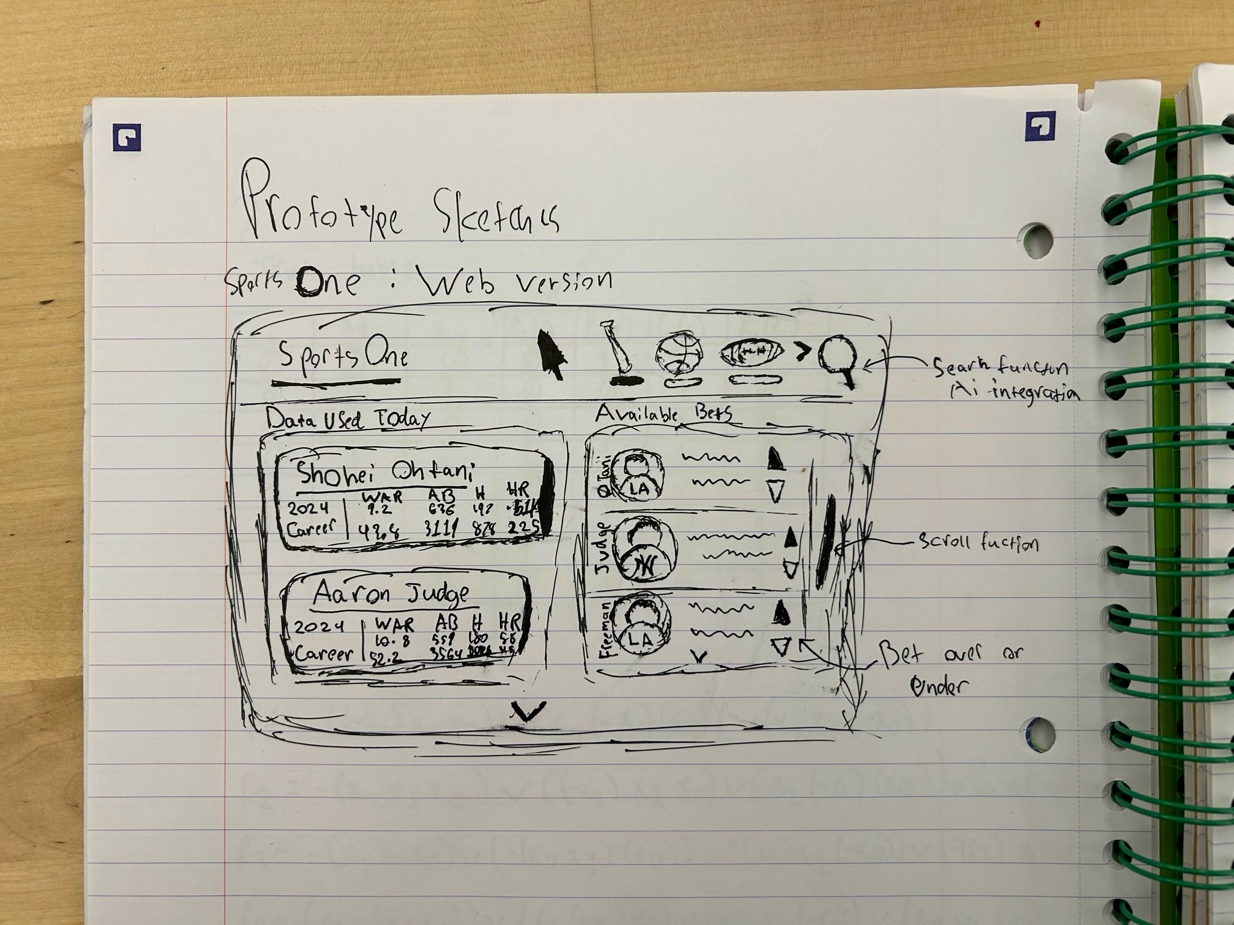 Prototype Sketches
Sports One : Web version
Sports One
Search function
Ai integration
Data Used Today
Shohei Ohtani
WAR AB H HR
2024 9.2 636 197
Career 43.8 3119 878 225
Aaron Judge
WAR AB H HR
2024 10.8 559 180 58
Career 52.2 3564
Available Bets
Otani
LA
Judge
NY
Freeman
LA
Scroll fuction
Bet over or
Under